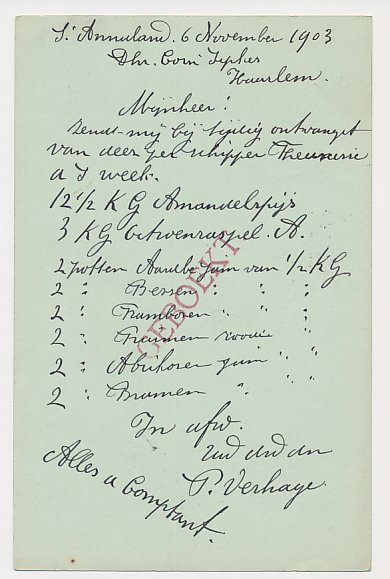 St Annaland. 6 November 1903
Dhr. Corn
Haarlem.
Mijnheer!
Zendt mij bij tijdig ontvangst
van deer per schipper
a s week.
12 1/2 K G Amandelspijs
3 KG A.
2 potten Aardbe Jam van 1/2 KG
2 " Bessen " " "
2 " Framboren " " "
2 " Preuimen roode "
2 " Abrikosen Jam " "
2 " Bramen " " "
In afw.
Uwd dwd dn
P. Verhage
Alles a Comptant.
GEBOEKT